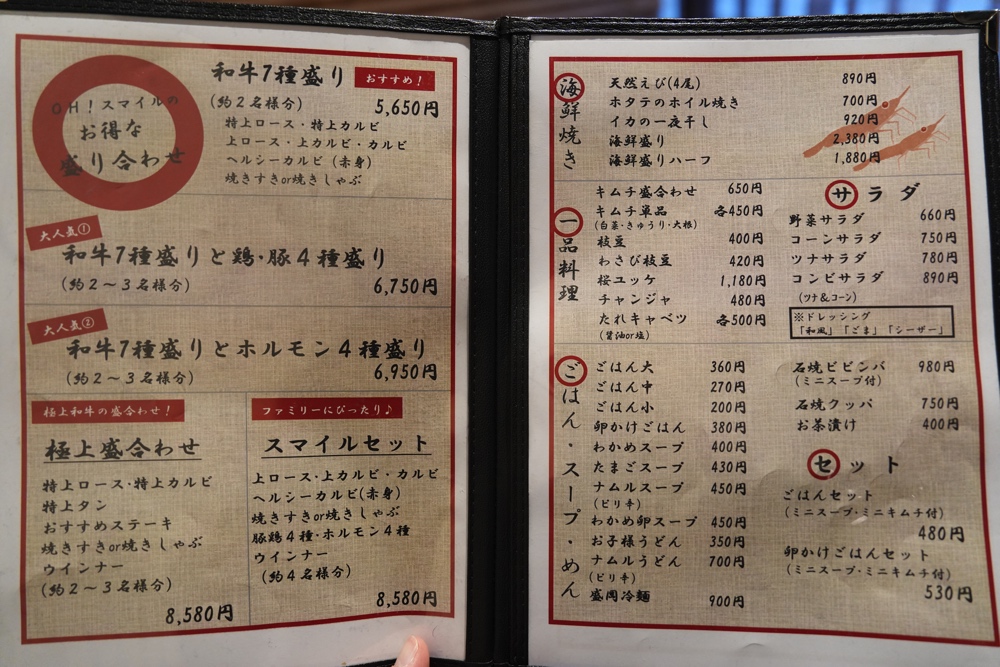 OH！スマイルの
お得な
盛り合わせ
和牛7種盛り
おすすめ！
(約2名様分)
5,650円
特上ロース・特上カルビ
上ロース・上カルビ・カルビ
ヘルシーカルビ(赤身)
焼きすきor焼きしゃぶ
大人気①
和牛7種盛りと鶏・豚4種盛り
(約2～3名様分)
6,750円
大人気②
和牛7種盛りとホルモン4種盛り
(約2～3名様分)
6,950円
極上和牛の盛合わせ！
極上盛合わせ
特上ロース・特上カルビ
特上タン
おすすめステーキ
焼きすきor焼きしゃぶ
ウインナー
(約2～3名様分)
8,580円
ファミリーにぴったり♪
スマイルセット
上ロース・上カルビ・カルビ
ヘルシーカルビ(赤身)
焼きすきor焼きしゃぶ
豚鶏4種・ホルモン4種
ウインナー
(約4名様分)
8,580円
海鮮焼き
天然えび(4尾) 890円
ホタテのホイル焼き 700円
イカの一夜干し 920円
海鮮盛り 2,380円
海鮮盛りハーフ 1,880円
一品料理
キムチ盛合わせ 650円
キムチ単品 各450円
(白菜・きゅうり・大根)
枝豆 400円
わさび枝豆 420円
桜ユッケ 1,180円
チャンジャ 480円
たれキャベツ 各500円
(醤油or塩)
サラダ
野菜サラダ 660円
コーンサラダ 750円
ツナサラダ 780円
コンビサラダ 890円
(ツナ&コーン)
※ドレッシング
「和風」「ごま」「シーザー」
ごはん・スープ・めん
ごはん大 360円
ごはん中 270円
ごはん小 200円
卵かけごはん 380円
わかめスープ 400円
たまごスープ 430円
ナムルスープ 450円
(ピリ辛)
わかめ卵スープ 450円
お子様うどん 350円
ナムルうどん 700円
(ピリ辛)
盛岡冷麺 900円
石焼ビビンバ 980円
(ミニスープ付)
石焼クッパ 750円
お茶漬け 400円
セット
ごはんセット
(ミニスープ・ミニキムチ付)
480円
卵かけごはんセット
(ミニスープ・ミニキムチ付)
530円